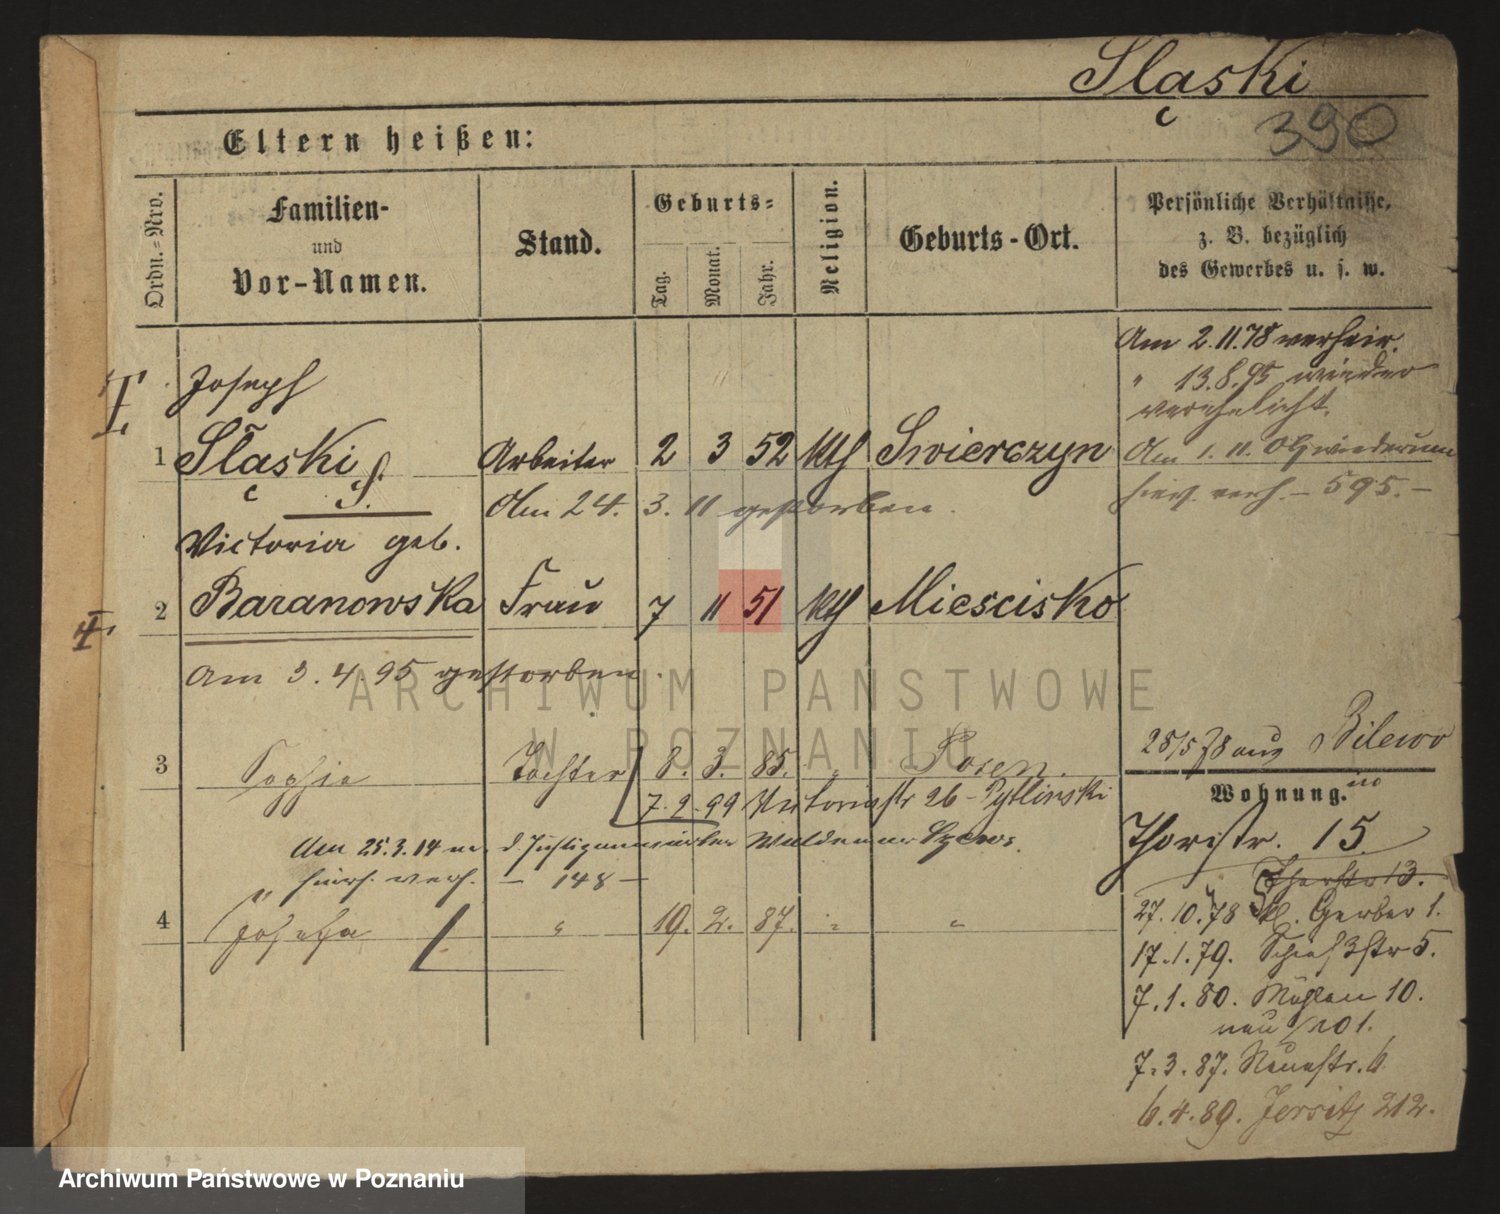 Śląski
390
Eltern heißen:
Ordn.-Nro.
Familien-
und
Vor-Namen.
Stand.
Geburts-
Tag.
Monat.
Jahr.
Religion.
Geburts-Ort.
Persönliche Verhältnisse,
z. B. bezüglich
des Gewerbes u. s. w.
Am 2.11.78 verheir.
" 13.8.95 wieder
verehelicht.
Joseph
1 Śląski Arbeiter 2 3 52 kth Swierczyn
Am 1. 11. wiederum
verh. – 595. –
Am 24. 3. 11 gestorben.
Victoria geb.
2 Baranowska Frau 7 11 51 kth Miescisko
Am 3. 4. 95 gestorben.
3 Sophie Tochter 8. 3. 85. " Posen.
28/5 78 aus Bilewo
7. 2. 99 Victoriastr 26 - Pytlinski
Wohnung.
Am 25.3.14 m. d. Waldemar
hiers. verh. – 148 –
Thorstr. 15
Thorstr 13.
4 Josefa " 19. 2. 87. " "
27.10.78 kl. Gerber 1.
17.1.79. Schießstr 5.
7.1.80. Mühlen 10.
neu No 1.
7.3.87. Neuestr. 6
6.4.89. Jersitz 212.
ARCHIWUM PAŃSTWOWE
W POZNANIU
Archiwum Państwowe w Poznaniu